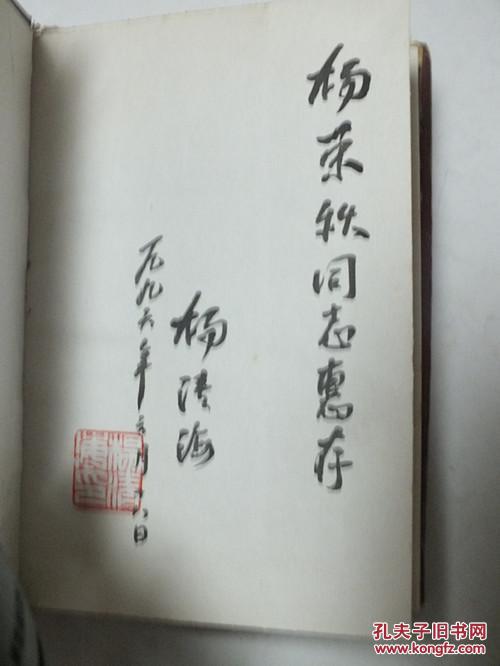 杨荣秋同志惠存
杨清海
一九九六年三月十八日
孔夫子旧书网
kongfz.com